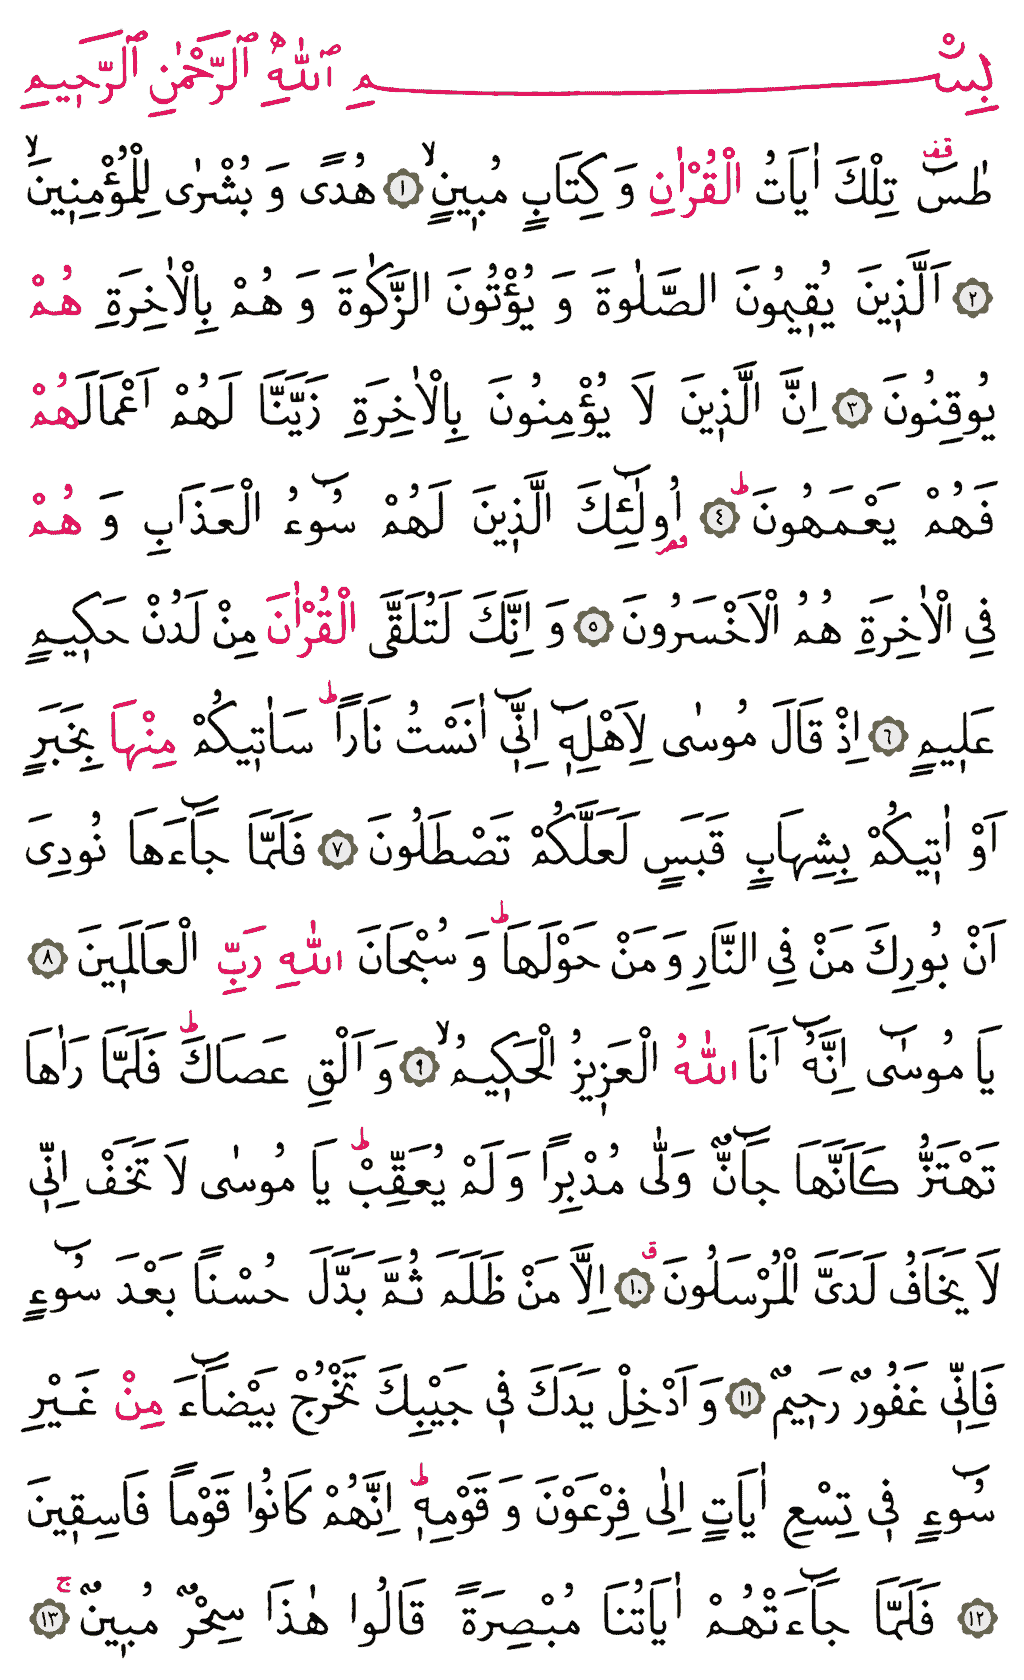 بِسْمِ اللّٰهِ الرَّحْمٰنِ الرَّح۪يمِ
طٰسٓ۠ تِلْكَ اٰيَاتُ الْقُرْاٰنِ وَ كِتَابٍ مُب۪ينٍۙ ﴿١﴾ هُدًى وَ بُشْرٰى لِلْمُؤْمِن۪ينَۙ
﴿٢﴾ اَلَّذ۪ينَ يُق۪يمُونَ الصَّلٰوةَ وَ يُؤْتُونَ الزَّكٰوةَ وَ هُمْ بِالْاٰخِرَةِ هُمْ
يُوقِنُونَ ﴿٣﴾ اِنَّ الَّذ۪ينَ لَا يُؤْمِنُونَ بِالْاٰخِرَةِ زَيَّنَّا لَهُمْ اَعْمَالَهُمْ
فَهُمْ يَعْمَهُونَۜ ﴿٤﴾ اُو۬لٰٓئِكَ الَّذ۪ينَ لَهُمْ سُٓوءُ الْعَذَابِ وَ هُمْ
فِي الْاٰخِرَةِ هُمُ الْاَخْسَرُونَ ﴿٥﴾ وَ اِنَّكَ لَتُلَقَّى الْقُرْاٰنَ مِنْ لَدُنْ حَك۪يمٍ
عَل۪يمٍ ﴿٦﴾ اِذْ قَالَ مُوسٰى لِاَهْلِه۪ٓ اِنّ۪ٓي اٰنَسْتُ نَاراًۜ سَاٰت۪يكُمْ مِنْهَا بِخَبَرٍ
اَوْ اٰت۪يكُمْ بِشِهَابٍ قَبَسٍ لَعَلَّكُمْ تَصْطَلُونَ ﴿٧﴾ فَلَمَّا جَٓاءَهَا نُودِيَ
اَنْ بُورِكَ مَنْ فِي النَّارِ وَ مَنْ حَوْلَهَاۜ وَ سُبْحَانَ اللّٰهِ رَبِّ الْعَالَم۪ينَ ﴿٨﴾
يَا مُوسٰٓى اِنَّهُٓ اَنَا اللّٰهُ الْعَز۪يزُ الْحَك۪يمُۙ ﴿٩﴾ وَ اَلْقِ عَصَاكَۜ فَلَمَّا رَاٰهَا
تَهْتَزُّ كَاَنَّهَا جَٓانٌّ وَلّٰى مُدْبِراً وَ لَمْ يُعَقِّبْۜ يَا مُوسٰى لَا تَخَفْ اِنّ۪ي
لَا يَخَافُ لَدَيَّ الْمُرْسَلُونَۗ ﴿١٠﴾ اِلَّا مَنْ ظَلَمَ ثُمَّ بَدَّلَ حُسْناً بَعْدَ سُٓوءٍ
فَاِنّ۪ي غَفُورٌ رَح۪يمٌ ﴿١١﴾ وَ اَدْخِلْ يَدَكَ ف۪ي جَيْبِكَ تَخْرُجْ بَيْضَٓاءَ مِنْ غَيْرِ
سُٓوءٍ ف۪ي تِسْعِ اٰيَاتٍ اِلٰى فِرْعَوْنَ وَ قَوْمِه۪ۜ اِنَّهُمْ كَانُوا قَوْماً فَاسِق۪ينَ
﴿١٢﴾ فَلَمَّا جَٓاءَتْهُمْ اٰيَاتُنَا مُبْصِرَةً قَالُوا هٰذَا سِحْرٌ مُب۪ينٌۚ ﴿١٣﴾